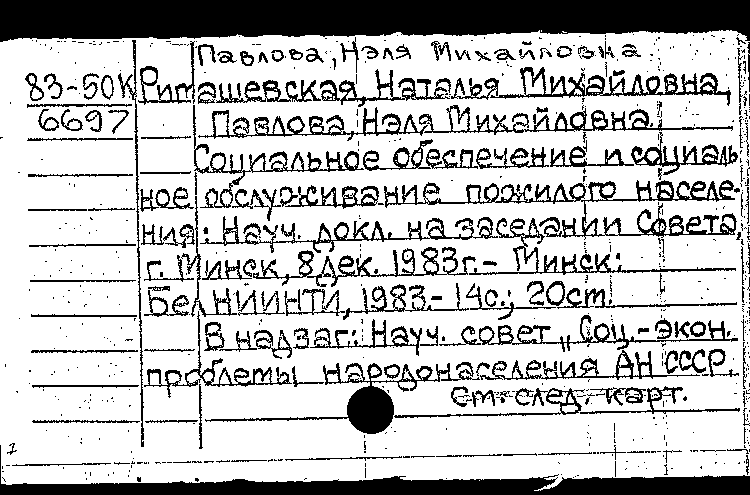 Павлова, Нэля Михайловна
83-50К Римашевская, Наталья Михайловна,
6697 Павлова, Нэля Михайловна.
Социальное обеспечение и социаль
ное обслуживание пожилого населе-
ния: Науч. докл. на заседании Совета,
г. Минск, 8 дек. 1983г.- Минск:
БелНИИНТИ, 1983.- 14с.; 20см.
В надзаг.: Науч. совет „Соц.-экон.
проблемы народонаселения АН СССР.
См. след. карт.